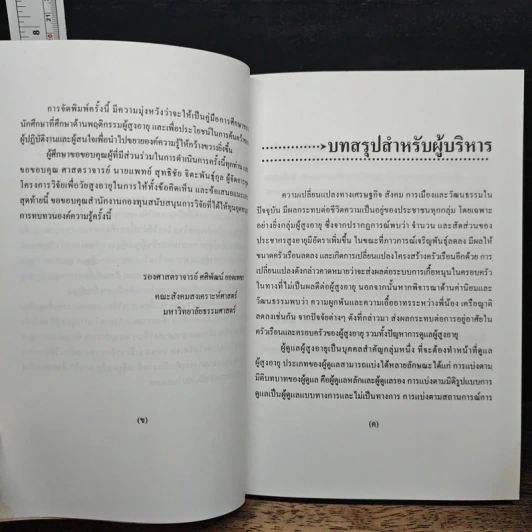 การจัดพิมพ์ครั้งนี้ มีความมุ่งหวังว่าจะให้เป็นคู่มือการศึกษา
นักศึกษาที่ศึกษาด้านพฤติกรรมผู้สูงอายุ และเพื่อประโยชน์ในการค้นคว้า
ผู้ปฏิบัติงานและผู้สนใจเพื่อนำไปขยายองค์ความรู้ให้กว้างขวางยิ่งขึ้น
ผู้ศึกษาขอขอบคุณผู้ที่มีส่วนร่วมในการดำเนินการครั้งนี้ทุกท่าน
ขอขอบคุณ ศาสตราจารย์ นายแพทย์ สุทธิชัย จิตะพันธ์กุล
โครงการวิจัยเพื่อวัยสูงอายุในการให้ทั้งข้อคิดเห็น และข้อเสนอแนะ
สุดท้ายนี้ ขอขอบคุณสำนักงานกองทุนสนับสนุนการวิจัยที่ได้ให้ทุน
การทบทวนองค์ความรู้ครั้งนี้
รองศาสตราจารย์ ศศิพัฒน์
คณะสังคมสงเคราะห์ศาสตร์
มหาวิทยาลัยธรรมศาสตร์
(ข)
บทสรุปสำหรับผู้บริหาร
ความเปลี่ยนแปลงทางเศรษฐกิจ สังคม การเมืองและวัฒนธรรมใน
ปัจจุบัน มีผลกระทบต่อชีวิตความเป็นอยู่ของประชาชนทุกกลุ่ม โดยเฉพาะ
อย่างยิ่งกลุ่มผู้สูงอายุ ซึ่งจากปรากฏการณ์พบว่า จำนวน และสัดส่วนของ
ประชากรสูงอายุมีอัตราเพิ่มขึ้น ในขณะที่ภาวการณ์เจริญพันธุ์ลดลง มีผลให้
ขนาดครัวเรือนลดลง และเกิดการเปลี่ยนแปลงโครงสร้างครัวเรือนอีกด้วย การ
เปลี่ยนแปลงดังกล่าวคาดหมายว่าจะส่งผลต่อระบบการเกื้อหนุนในครอบครัว
ในทางที่ไม่เป็นผลดีต่อผู้สูงอายุ นอกจากนั้นหากพิจารณาด้านค่านิยมและ
วัฒนธรรมพบว่า ความผูกพันและความเอื้ออาทรระหว่างพี่น้อง เครือญาติ
ลดลงเช่นกัน จากปัจจัยต่างๆ ดังที่กล่าวมา ส่งผลกระทบต่อการอยู่อาศัยใน
ครัวเรือนและครอบครัวของผู้สูงอายุ รวมทั้งปัญหาการดูแลผู้สูงอายุ
ผู้ดูแลผู้สูงอายุเป็นบุคคลสำคัญกลุ่มหนึ่ง ที่จะต้องทำหน้าที่ดูแล
ผู้สูงอายุ ประเภทของผู้ดูแลสามารถแบ่งได้หลายลักษณะได้แก่ การแบ่งตาม
มิติบทบาทของผู้ดูแล คือผู้ดูแลหลักและผู้ดูแลรอง การแบ่งตามมิติรูปแบบการ
ดูแลเป็นผู้ดูแลแบบทางการและไม่เป็นทางการ การแบ่งตามสถานการณ์การ
(ค)
8